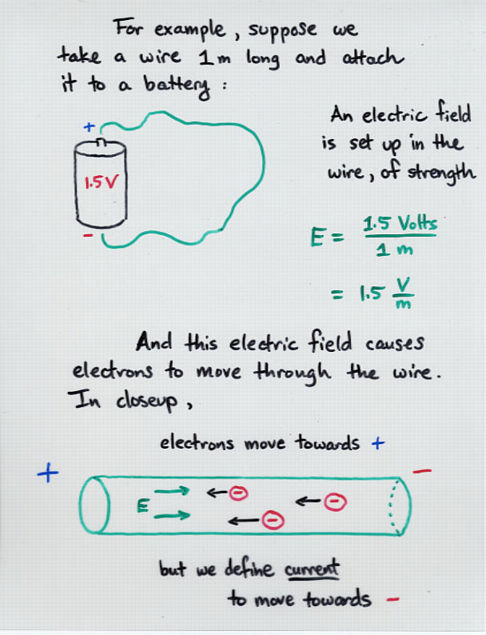 For example, suppose we
take a wire 1m long and attach
it to a battery:
+
1.5V
-
An electric field
is set up in the
wire, of strength
E = 1.5 Volts / 1 m
= 1.5 V/m
And this electric field causes
electrons to move through the wire.
In closeup,
electrons move towards +
+
-
E
- - - -
but we define current
to move towards -